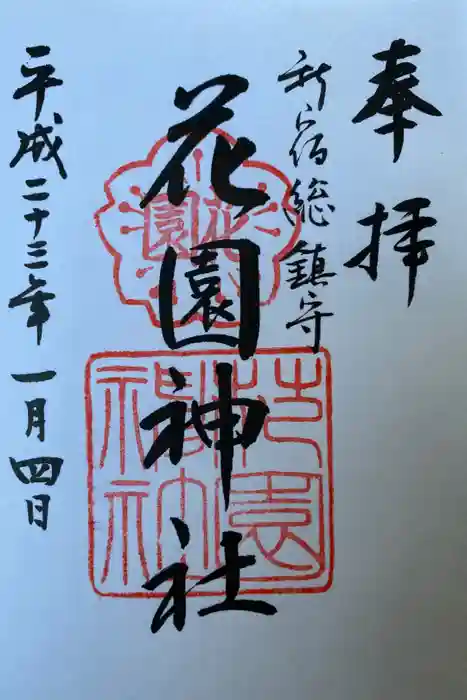 奉拝
新宿總鎮守
花園神社
平成二十三年一月四日
花園
花園神社